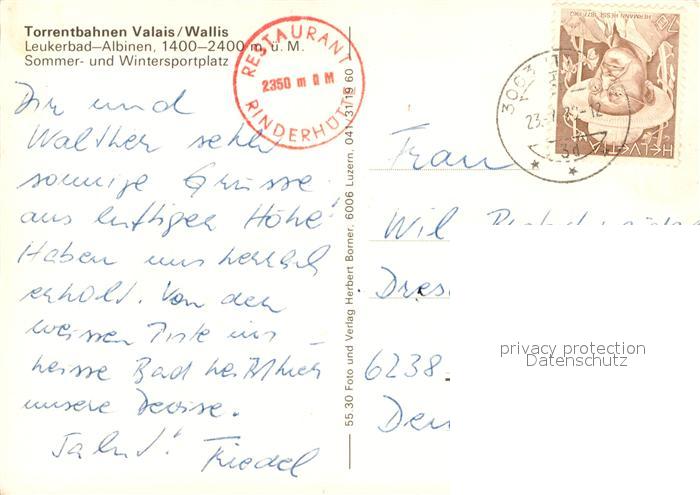 Torrentbahnen Valais/Wallis
Leukerbad–Albinen, 1400–2400 m. ü. M.
Sommer- und Wintersportplatz
RESTAURANT
2350 m ü M
RINDERHÜTTE
Dir und
Walther sehr
sonnige Grüsse
aus luftiger Höhe!
Haben uns herrlich
erholt. Von der
weissen Piste ins
heisse Bad heisst hier
unsere Devise.
Friedel
55 30 Foto und Verlag Herbert Borner, 6006 Luzern, 041/31 19 60
HERMANN HESSE 1877-1962
70
HELVETIA
Frau
Wil
6238
privacy protection
Datenschutz